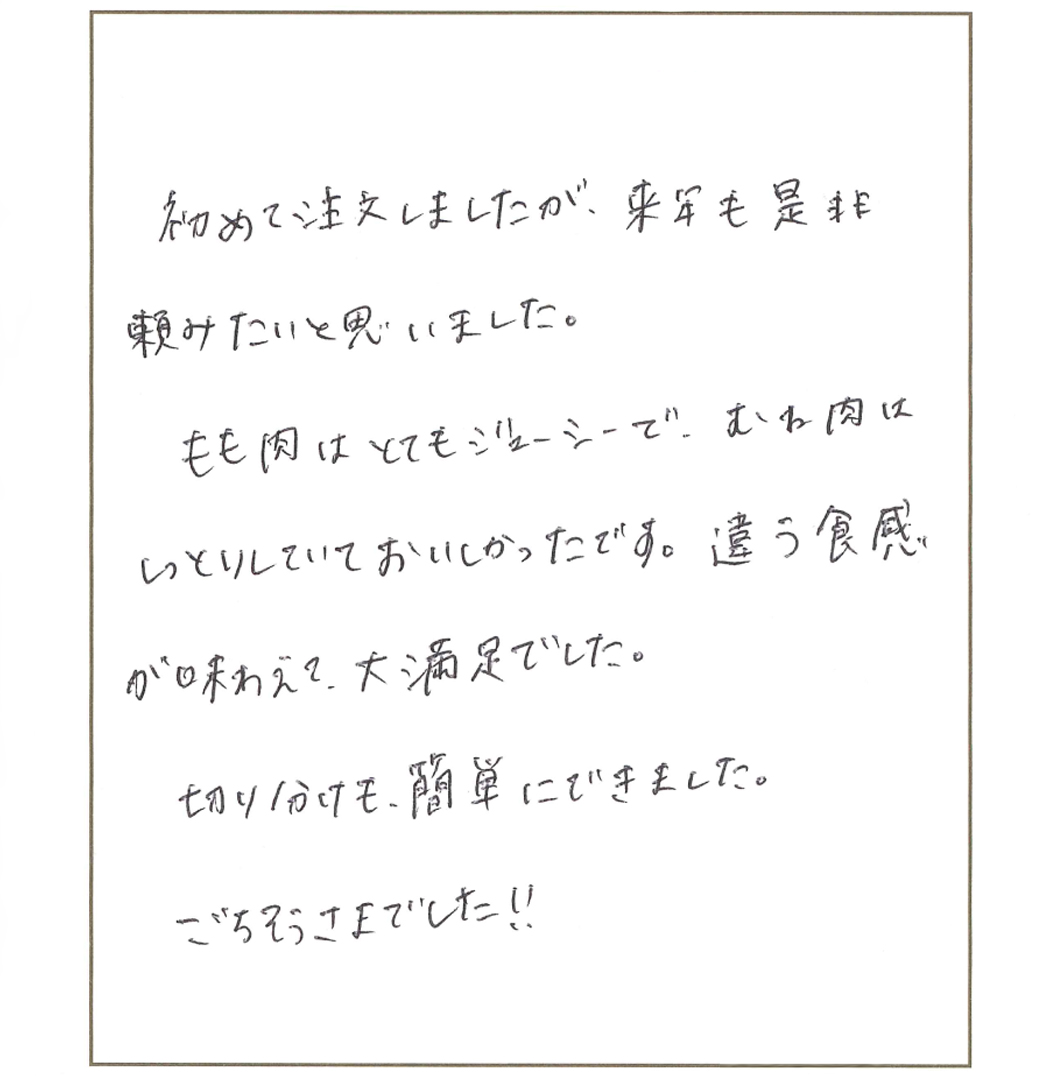 初めて注文しましたが、来年も是非
頼みたいと思いました。
もも肉はとてもジューシーで、むね肉は
しっとりしていておいしかったです。違う食感
が味わえて、大満足でした。
切り分けも、簡単にできました。
ごちそうさまでした!!